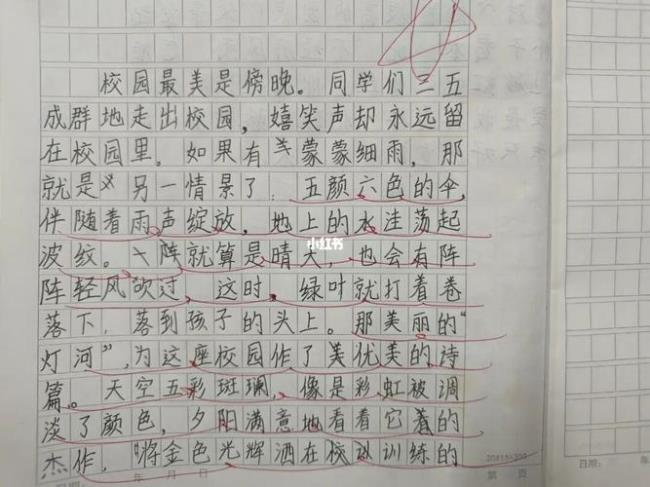 校园最美是傍晚。同学们三五
成群地走出校园，嬉笑声却永远留
在校园里。如果有蒙蒙细雨，那
就是另一情景了。五颜六色的伞，
伴随着雨声绽放，地上的水洼荡起
波纹。就算是晴天，也会有阵
阵轻风吹过，这时，绿叶就打着卷
落下，落到孩子的头上。那美丽的“
灯河”，为这座校园作了美优美的诗
篇。天空五彩斑斓，像是彩虹被调
淡了颜色，夕阳满意地看着它着的
杰作，将金色光辉洒在校训练的
小红书
年 月 日
第 页
日期：